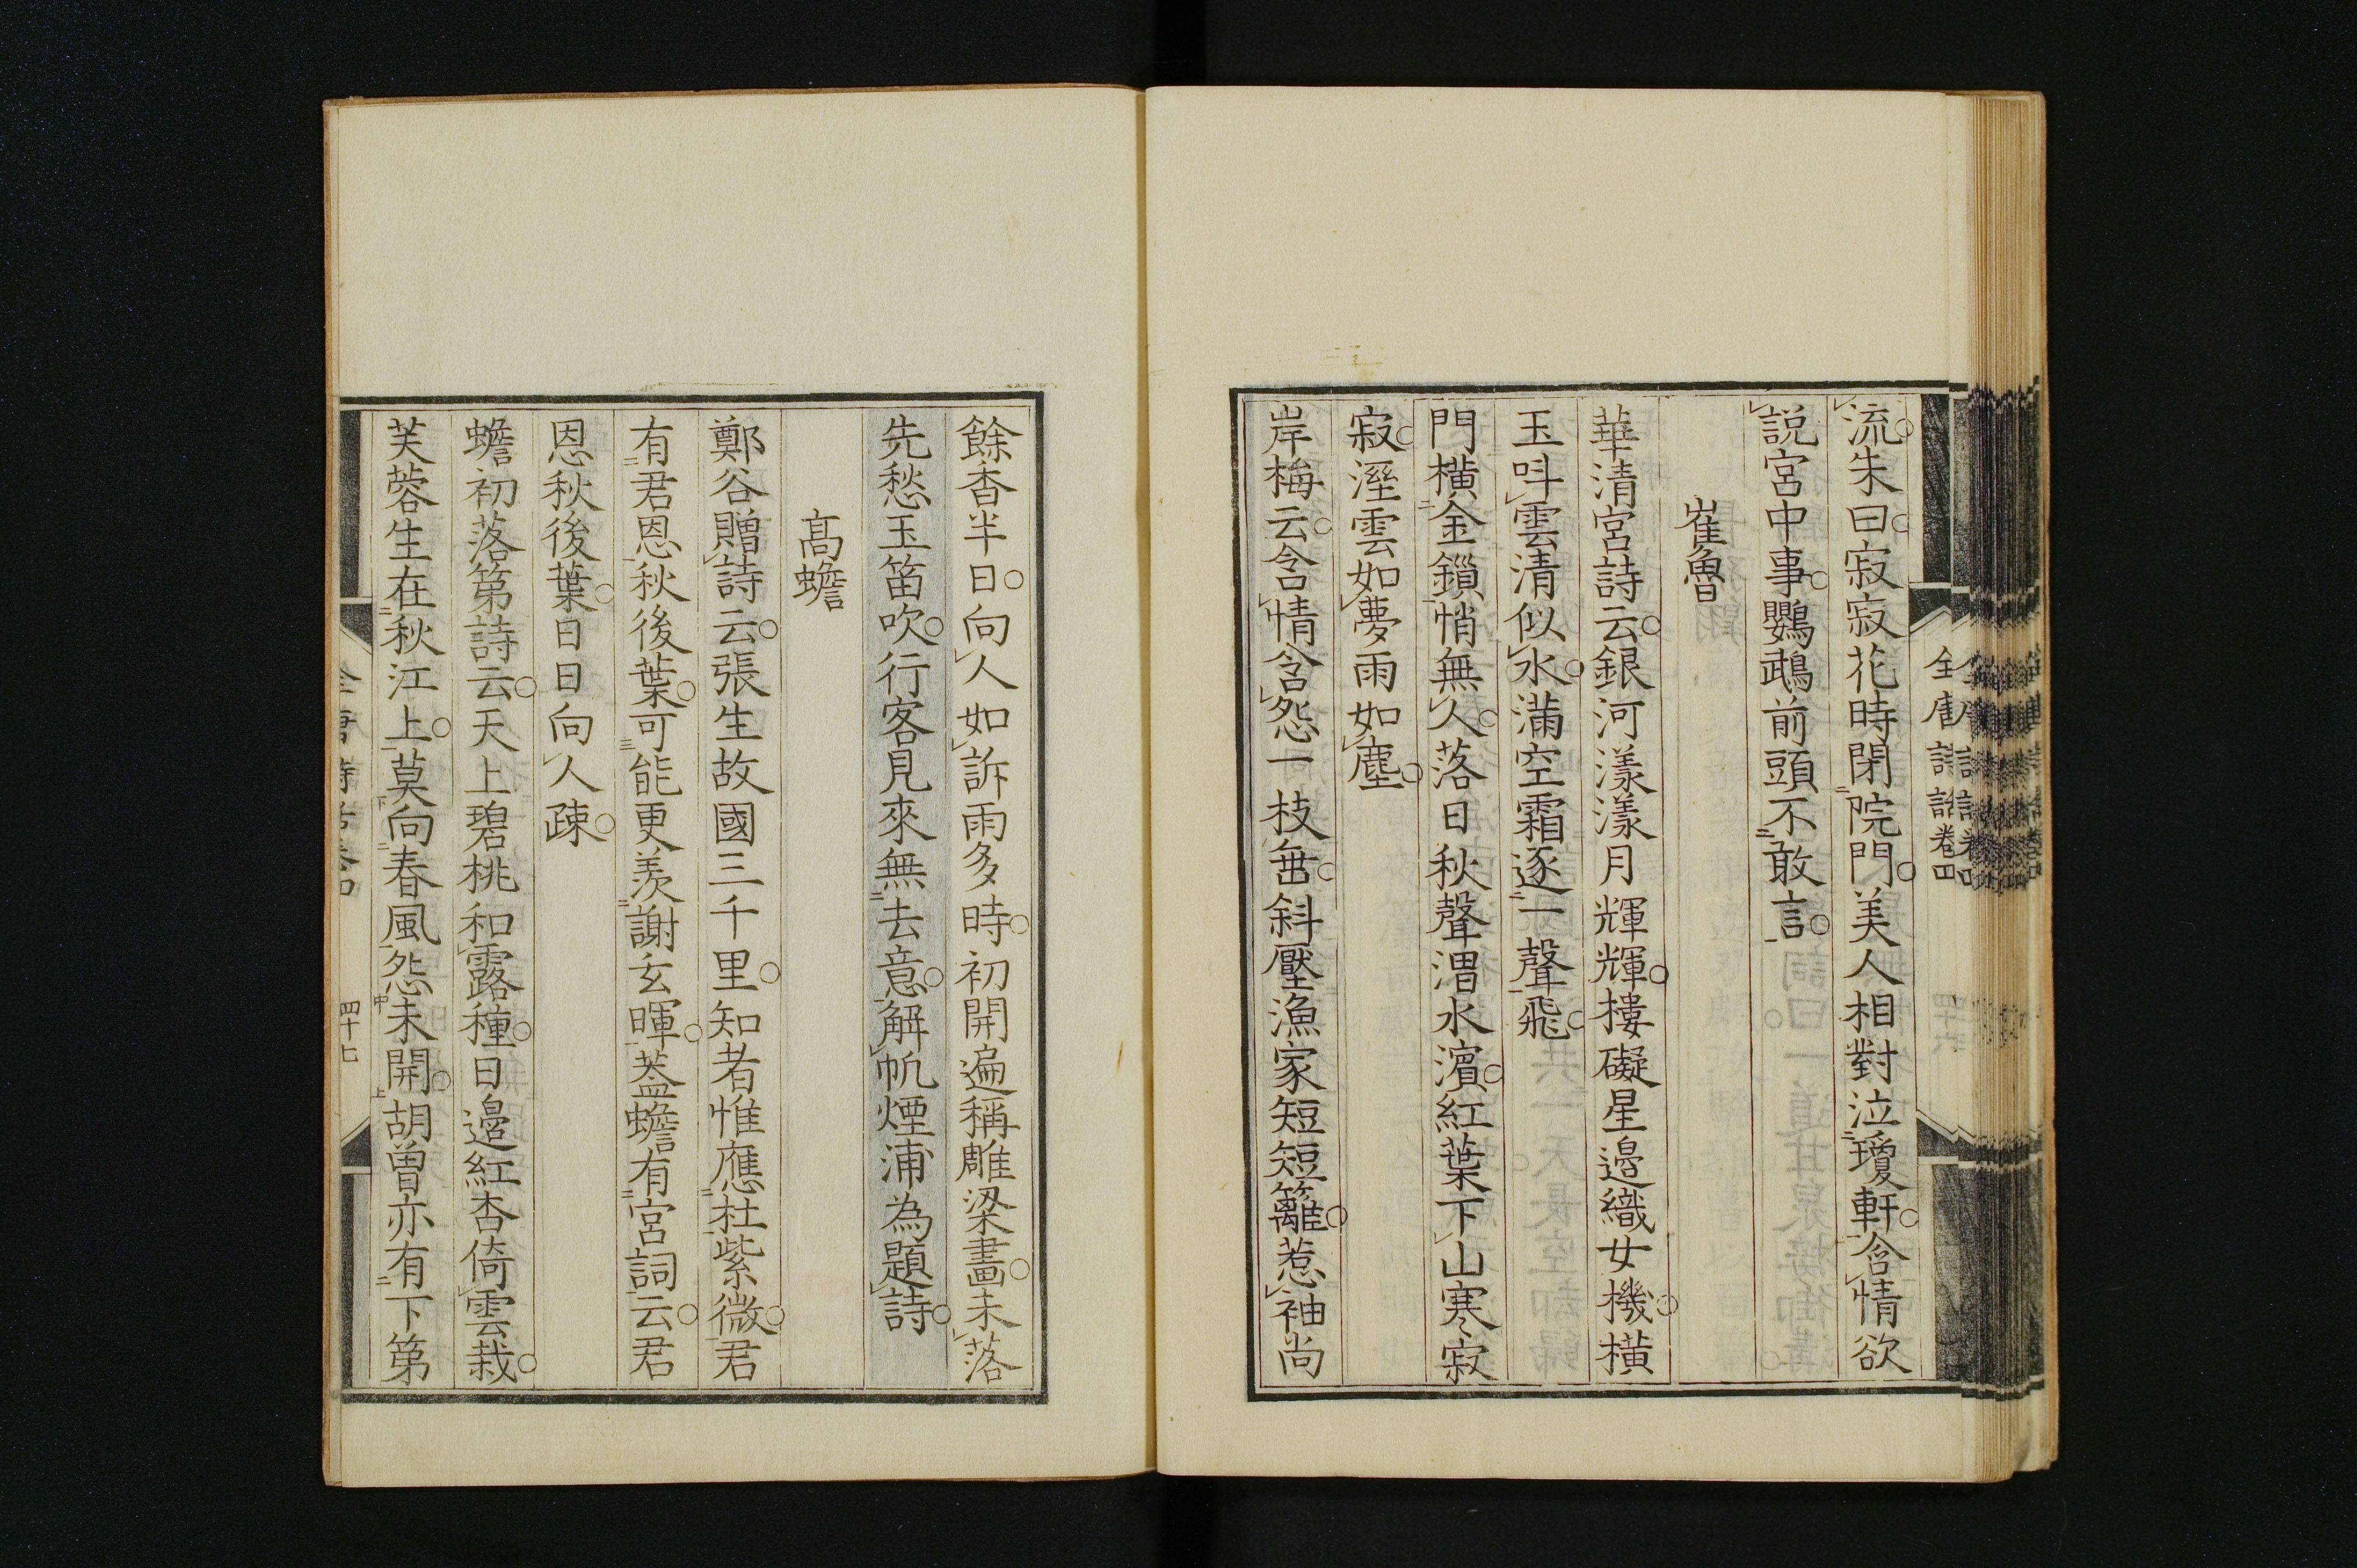 全唐詩話卷四
流朱曰寂寂花時閉院門美人相對泣瓊軒含情欲
説宮中事鸚鵡前頭不敢言
崔魯
華清宮詩云銀河漾漾月輝輝樓礙星邉織女機橫
玉呌雲清似水滿空霜逐一聲飛
門橫金鎻悄無人落日秋聲渭水濱紅葉下山寒寂
寂溼雲如夢雨如塵
岸梅云含情含怨一枝枝斜壓漁家短短籬惹袖尚
餘香半日向人如訴雨多時初開遍稱雕梁畫未落
先愁玉笛吹行客見來無去意解帆煙浦為題詩
髙蟾
鄭谷贈詩云張生故國三千里知者惟應杜紫微君
有君恩秋後葉可能更羨謝玄暉葢蟾有宮詞云君
恩秋後葉日日向人疎
蟾初落第詩云天上碧桃和露種日邉紅杏倚雲栽
芙蓉生在秋江上莫向春風怨未開胡曽亦有下第
四十七